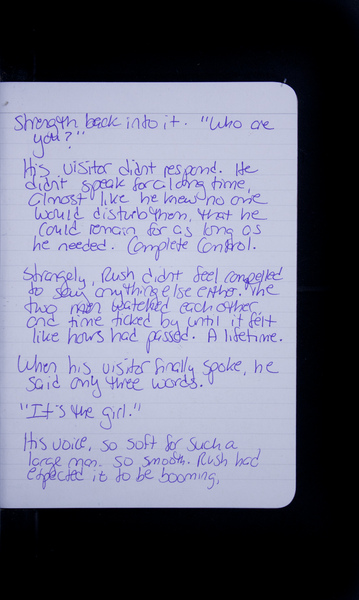 Strength back into it. "Who are
you?"
His visitor didnt respond. He
didn't speak for a long time,
almost like he knew no one
would disturb them, that he
could remain for as long as
he needed. Complete Control.
Strangely, Rush didnt feel compelled
to say anything else either. The
two men watched each other
and time ticked by until it felt
like hours had passed. A lifetime.
When his visitor finally spoke, he
said only three words.
"It's the girl."
His voice, so soft for such a
large man. So smooth. Rush had
expected it to be booming,